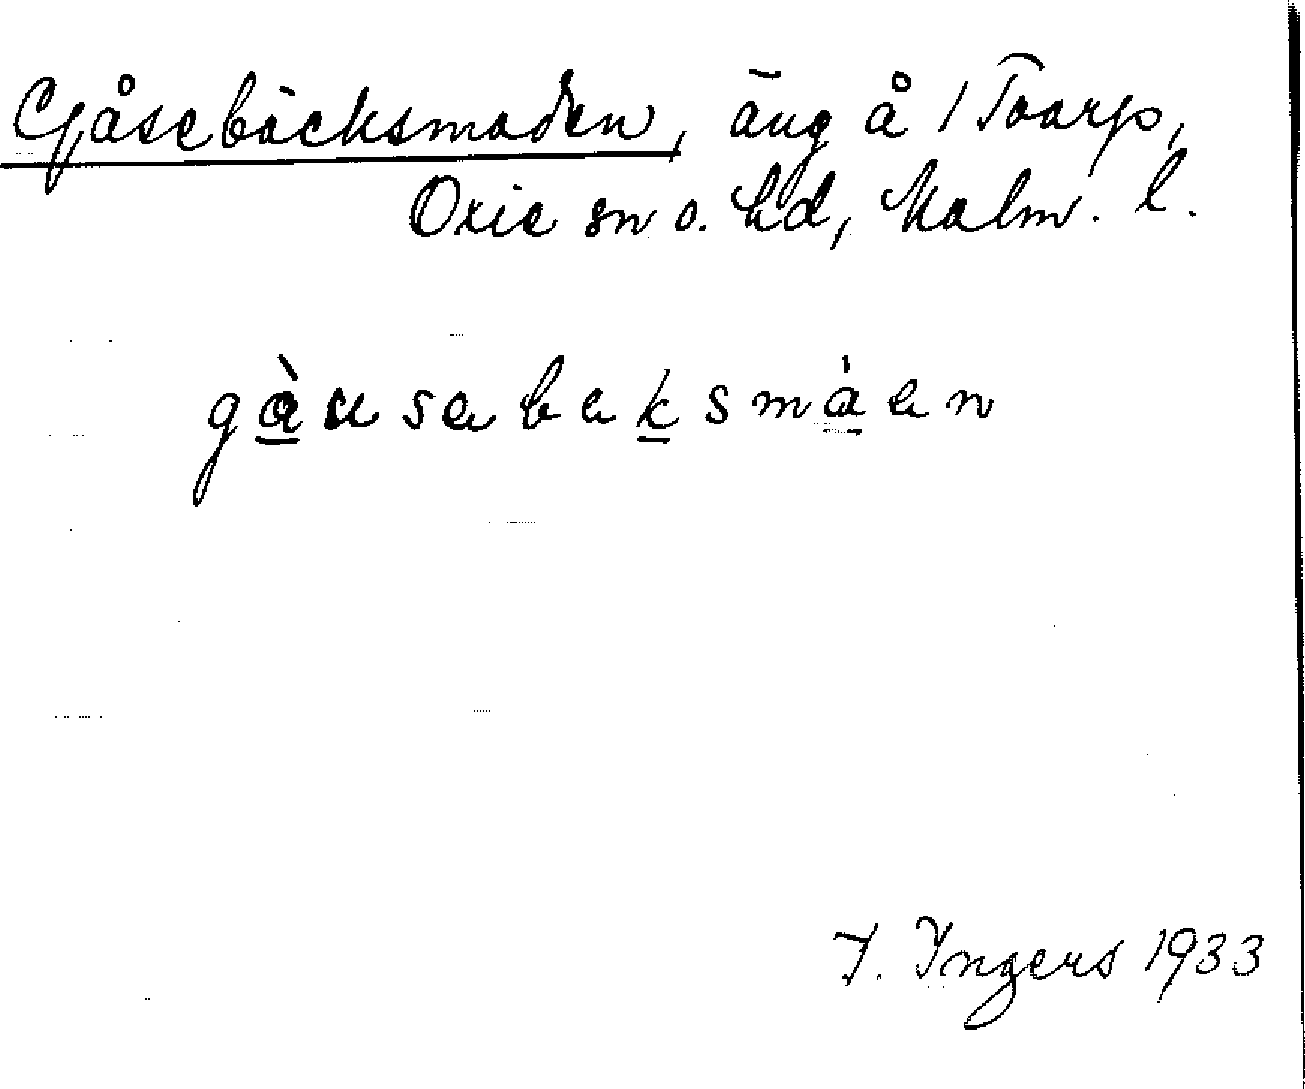 Gåsebäcksmaden, äng å 1 Toarp,
Oxie sn o. hd, Malm. l.
gàusabaksmàan
I. Ingers 1933